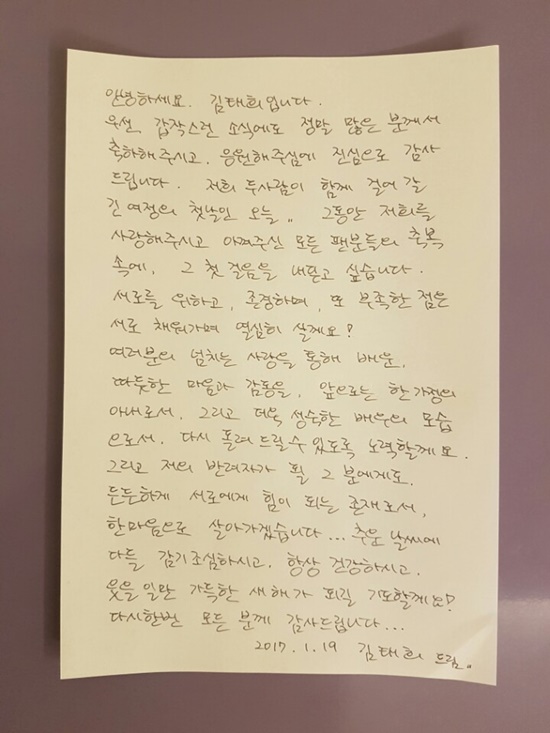 안녕하세요. 김태희입니다.
우선, 갑작스런 소식에도 정말 많은 분께서
축하해주시고. 응원해주심에 진심으로 감사
드립니다. 저희 두사람이 함께 걸어 갈
긴 여정의 첫날인 오늘,, 그동안 저희를
사랑해주시고 아껴주신 모든 팬분들의 축복
속에, 그 첫 걸음을 내딛고 싶습니다.
서로를 위하고, 존경하며, 또 부족한 점은
서로 채워가며 열심히 살게요!
여러분의 넘치는 사랑을 통해 배운,
따듯한 마음과 감동을, 앞으로는 한 가정의
아내로서. 그리고 더욱 성숙한 배우의 모습
으로서. 다시 돌려 드릴 수 있도록 노력할게요.
그리고 저의 반려자가 될 그 분에게도.
든든하게 서로에게 힘이 되는 존재로서,
한마음으로 살아가겠습니다... 추운 날씨에
다들 감기조심하시고. 항상 건강하시고.
웃을 일만 가득한 새해가 되길 기도할께요!
다시한번 모든 분께 감사드립니다...
2017. 1. 19 김태희 드림.